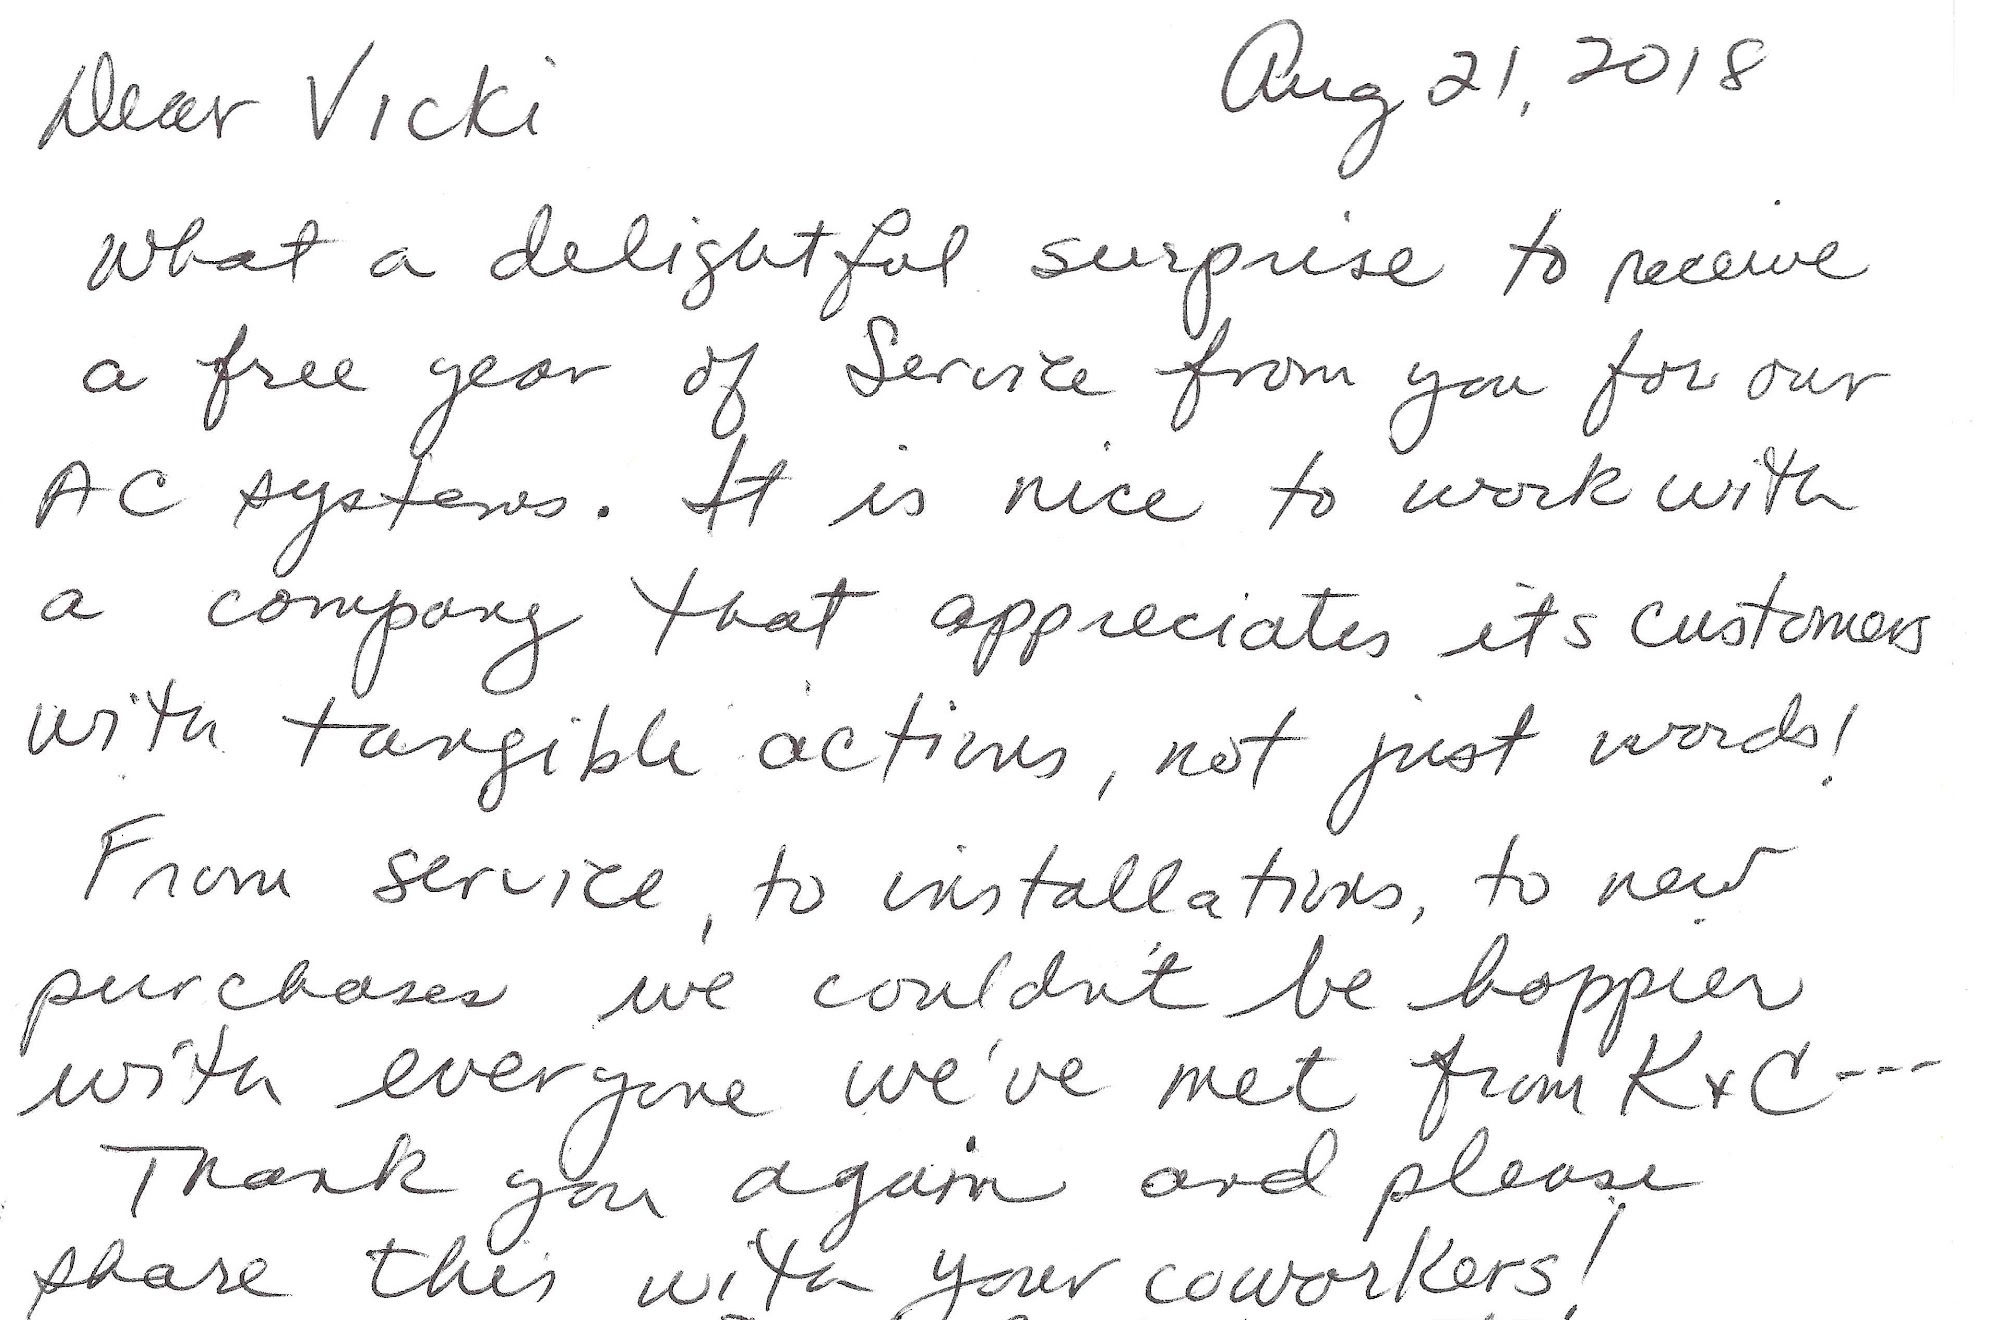 Dear Vicki Aug 21, 2018
What a delightful surprise to receive
a free year of Service from you for our
AC systems. It is nice to work with
a company that appreciates its customers
with tangible actions, not just words!
From service, to installations, to new
purchases we couldn't be happier
with everyone we've met from K+C---
Thank you again and please
share this with your coworkers!